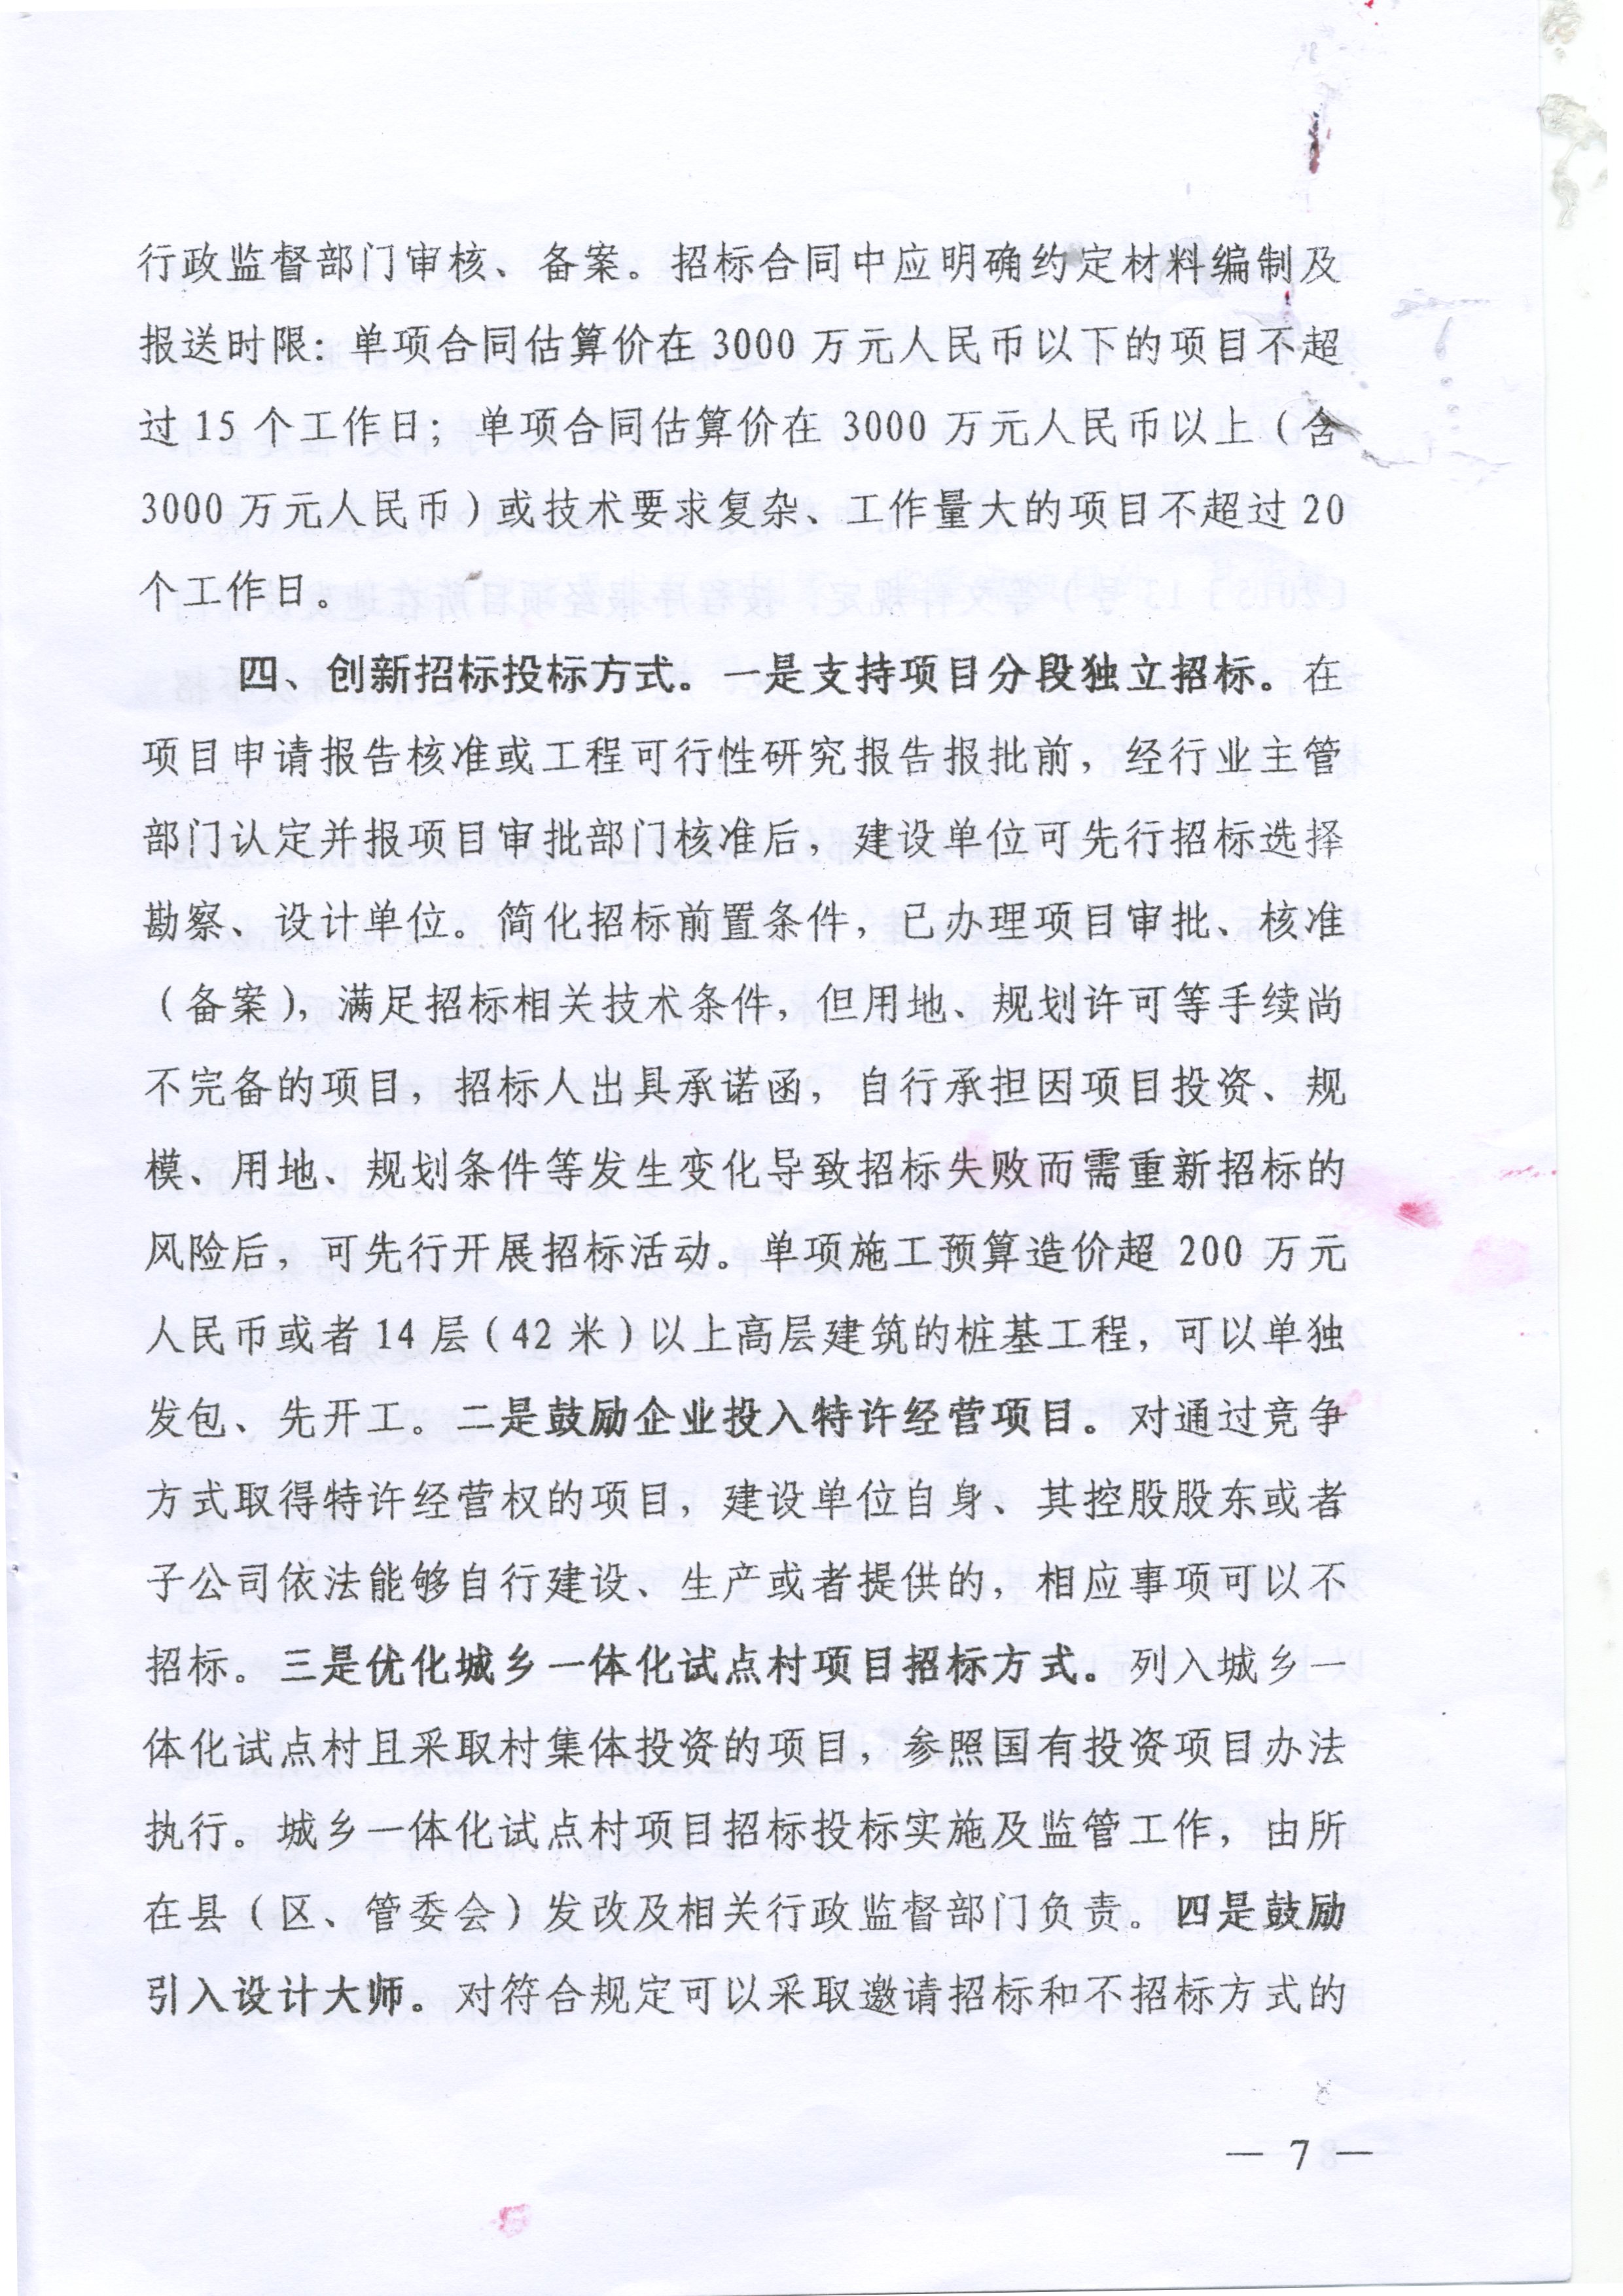 行政监督部门审核、备案。招标合同中应明确约定材料编制及
报送时限：单项合同估算价在 3000 万元人民币以下的项目不超
过 15 个工作日；单项合同估算价在 3000 万元人民币以上（含
3000 万元人民币）或技术要求复杂、工作量大的项目不超过 20
个工作日。
四、创新招标投标方式。一是支持项目分段独立招标。在
项目申请报告核准或工程可行性研究报告报批前，经行业主管
部门认定并报项目审批部门核准后，建设单位可先行招标选择
勘察、设计单位。简化招标前置条件，已办理项目审批、核准
（备案），满足招标相关技术条件，但用地、规划许可等手续尚
不完备的项目，招标人出具承诺函，自行承担因项目投资、规
模、用地、规划条件等发生变化导致招标失败而需重新招标的
风险后，可先行开展招标活动。单项施工预算造价超 200 万元
人民币或者 14 层（42 米）以上高层建筑的桩基工程，可以单独
发包、先开工。二是鼓励企业投入特许经营项目。对通过竞争
方式取得特许经营权的项目，建设单位自身、其控股股东或者
子公司依法能够自行建设、生产或者提供的，相应事项可以不
招标。三是优化城乡一体化试点村项目招标方式。列入城乡一
体化试点村且采取村集体投资的项目，参照国有投资项目办法
执行。城乡一体化试点村项目招标投标实施及监管工作，由所
在县（区、管委会）发改及相关行政监督部门负责。四是鼓励
引入设计大师。对符合规定可以采取邀请招标和不招标方式的
— 7 —